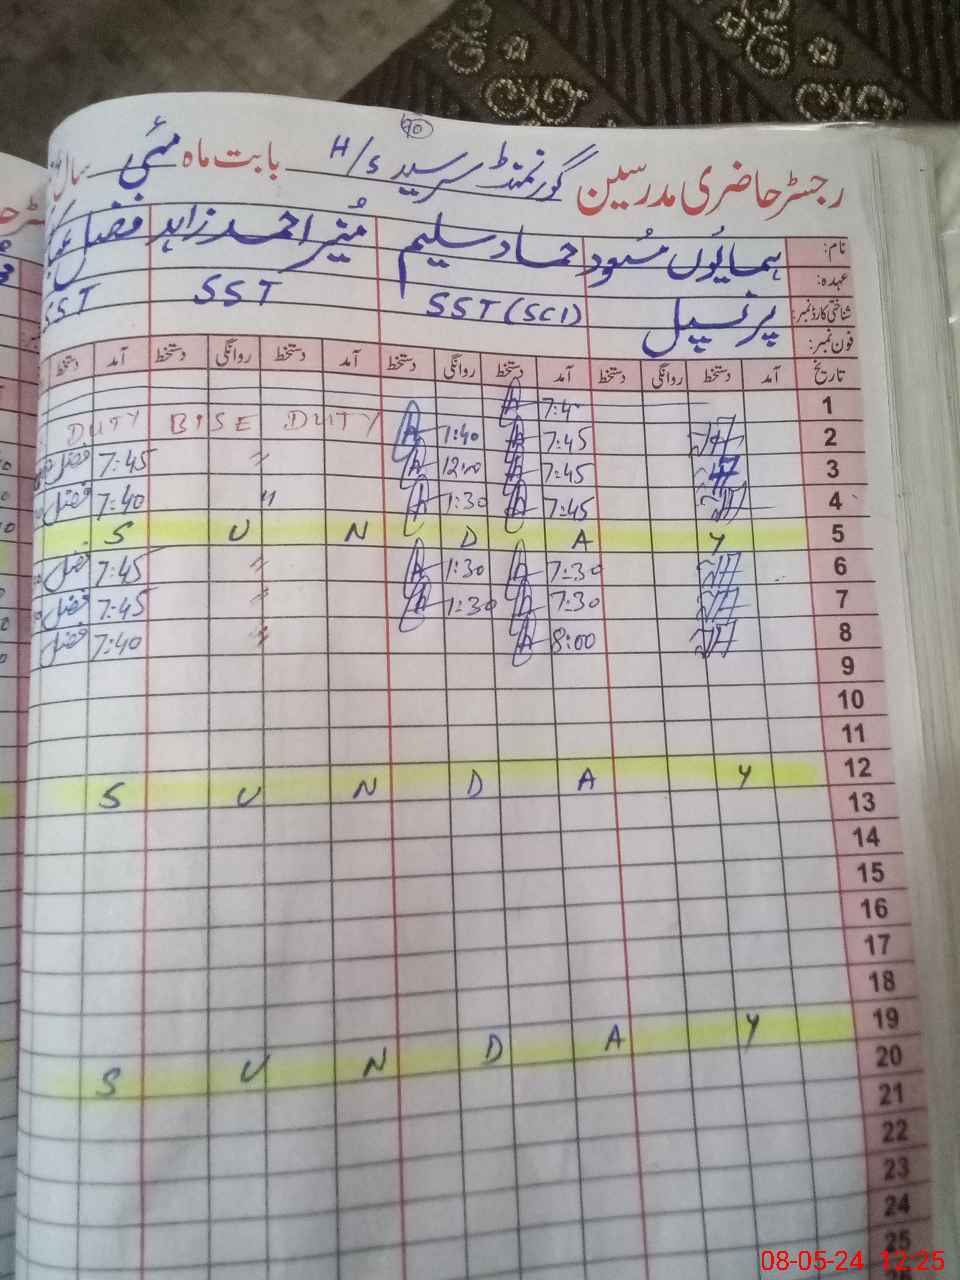 90
رجسٹر حاضری مدرسین گورنمنٹ سرسید H/S بابت ماہ مئی سال
نام: ہمایوں مسعود حماد سلیم مُنیر احمد زاہد فضل
عہدہ: پرنسپل SST (SCI) SST SST
شناختی کارڈ نمبر:
فون نمبر:
تاریخ آمد دستخط روانگی دستخط آمد دستخط روانگی دستخط آمد دستخط روانگی دستخط آمد دستخط
1 7:40
2 7:45 1:40 DUTY BISE DUTY
3 7:45 12:00 " 7:45 فضل
4 7:45 1:30 " 7:40 فضل
5 S U N D A Y
6 7:30 1:30 " 7:45 فضل
7 7:30 1:30 " 7:45 فضل
8 8:00 " 7:40 فضل
9
10
11
12 S U N D A Y
13
14
15
16
17
18
19 S U N D A Y
20
21
22
23
24
25
08-05-24 12:25